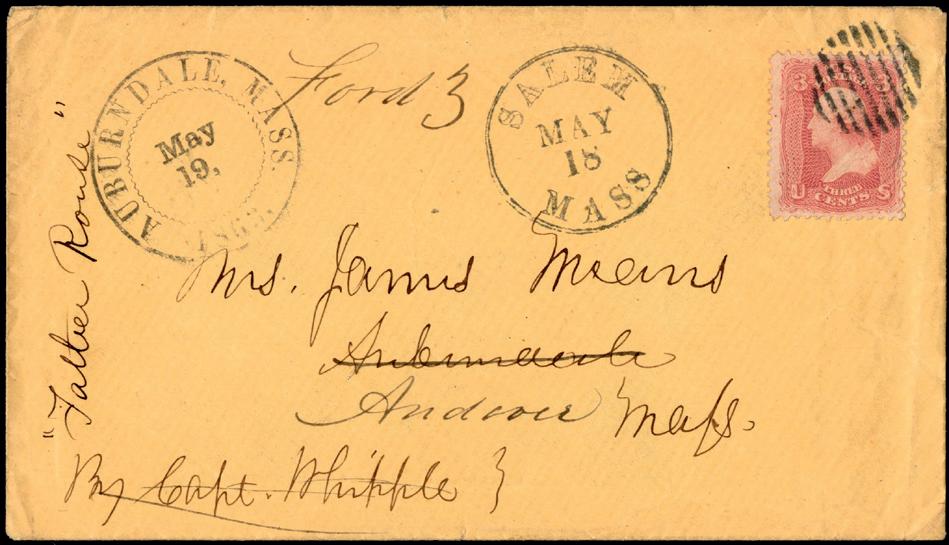 AUBURNDALE. MASS.
May
19,
Ford 3
SALEM
MAY
18
MASS
3
U S
THREE
CENTS
Mrs. James Means
Auburndale
Andover Mass.
By Capt. Whipple }
"Father Rouse"